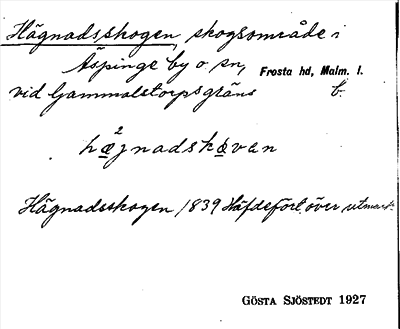 Hägnadsskogen, skogsområde i
Äspinge by o sn, Frosta hd, Malm. l.
vid Gammalstorpsgräns b.
hæ²gnadskøvan
Hägnadsskogen 1839 Häfdefört. över utmark
GÖSTA SJÖSTEDT 1927